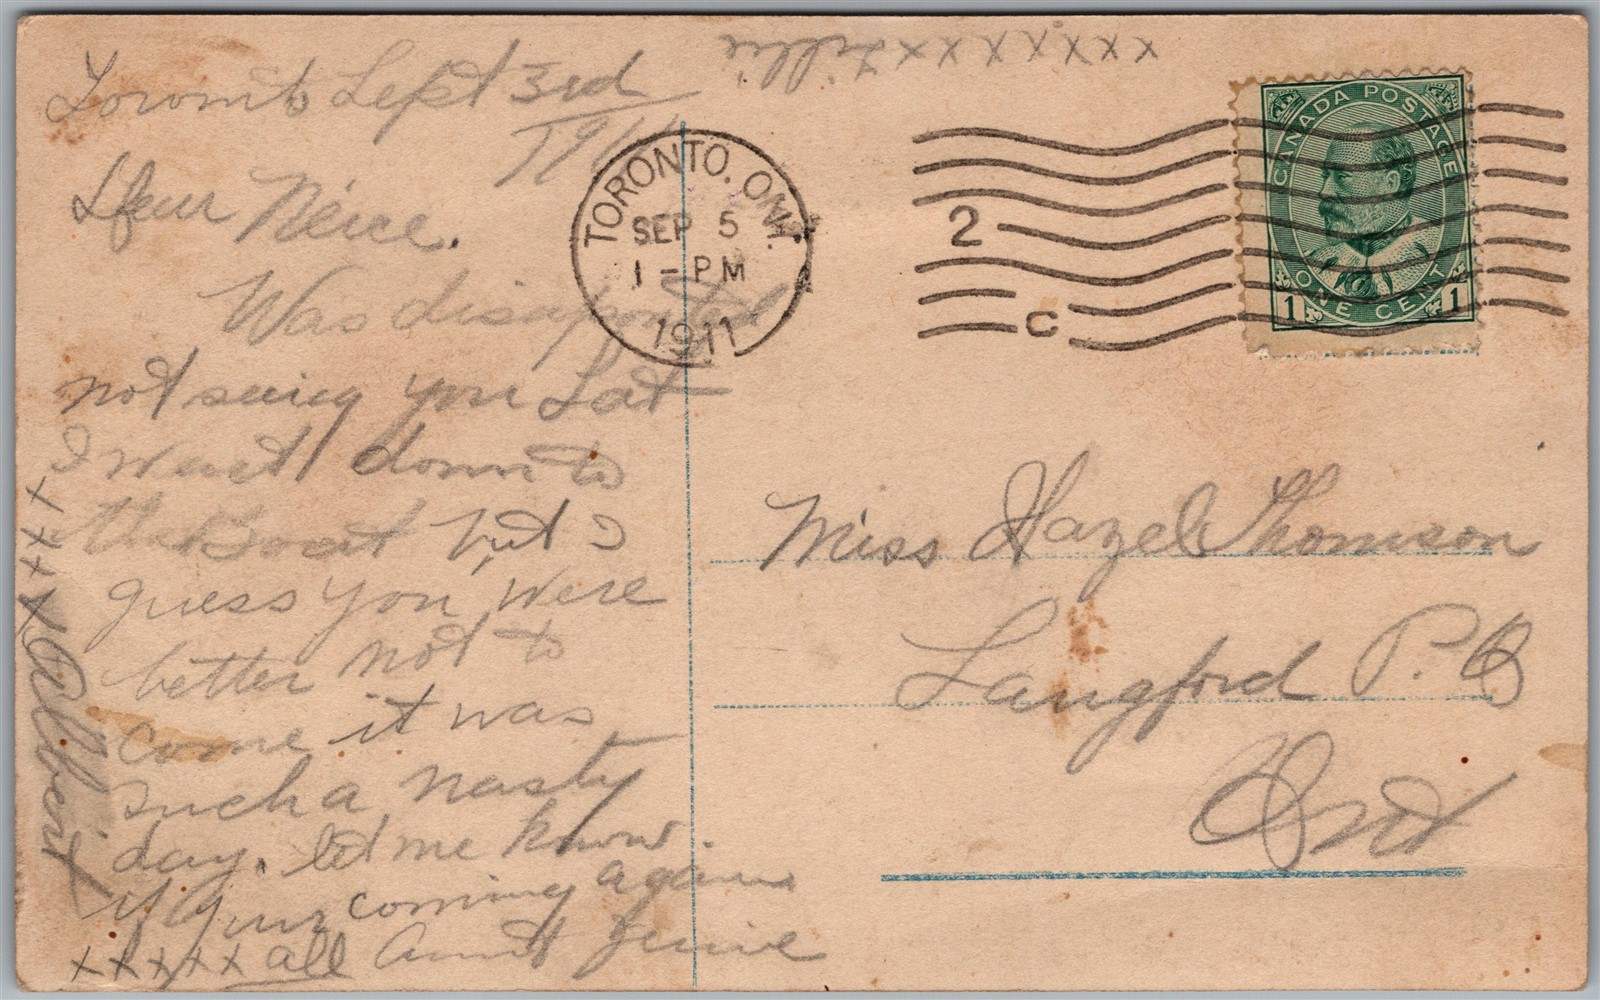 Toronto Sept 3rd
1911
Dear Neice.
Was disapointed
not seeing you Sat
I went down to
the Boat but I
guess you were
better not to
come it was
such a nasty
day. let me know
if your coming again
xxxxx all Aunt
xxxx Albert
xxxxxxx Lillie
TORONTO, ONT.
SEP 5
1-PM
1911
2
C
CANADA POSTAGE
ONE CENT
1 1
Miss Hazel Thomson
Langford P.O
Ont